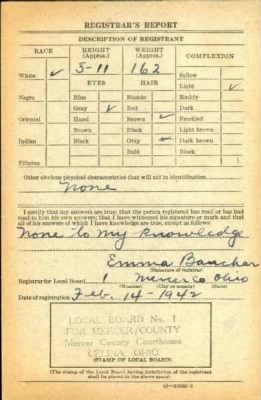 REGISTRAR'S REPORT
DESCRIPTION OF REGISTRANT
RACE HEIGHT (Approx.) WEIGHT (Approx.) COMPLEXION
White ✓ 5-11 162 Sallow
EYES HAIR Light ✓
Negro Blue Blonde Ruddy
Gray ✓ Red Dark
Oriental Hazel Brown ✓ Freckled
Brown Black Light brown
Indian Black Gray ✓ Dark brown
Bald Black
Filipino
Other obvious physical characteristics that will aid in identification
None
I certify that my answers are true; that the person registered has read or has had
read to him his own answers; that I have witnessed his signature or mark and that
all of his answers of which I have knowledge are true, except as follows:
None to my knowledge
Emma
(Signature of registrar)
Registrar for Local Board 1 Mercer Co. Ohio
(Number) (City or county) (State)
Date of registration Feb. 14-1942
LOCAL BOARD No. 1
FOR MERCER COUNTY
Mercer County Courthouse
CELINA, OHIO
(STAMP OF LOCAL BOARD)
(The stamp of the Local Board having jurisdiction of the registrant
shall be placed in the above space)